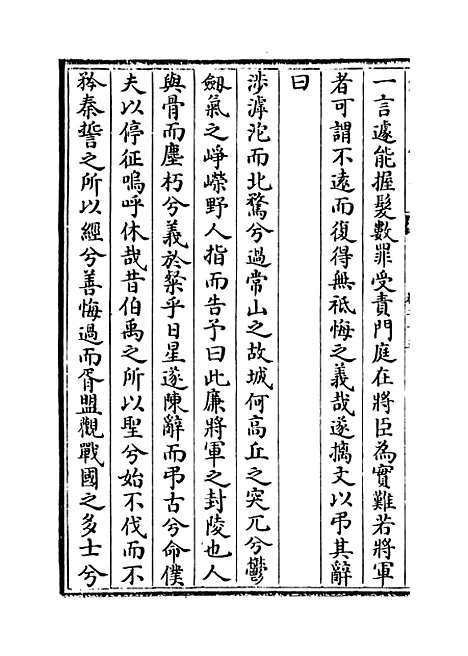 一言遽能握髮數罪受責門庭在將臣為實難若將軍
者可謂不遠而復得無祗悔之義哉遂摛文以弔其辭
曰
涉滹沱而北騖兮過常山之故城何髙丘之突兀兮鬱
劔氣之崢嶸野人指而告予曰此廉將軍之封陵也人
與骨而塵朽兮義於粲乎日星遂陳辭而弔古兮命僕
夫以停征嗚呼休哉昔伯禹之所以聖兮始不伐而不
矜秦誓之所以經兮善悔過而胥盟觀戰國之多士兮